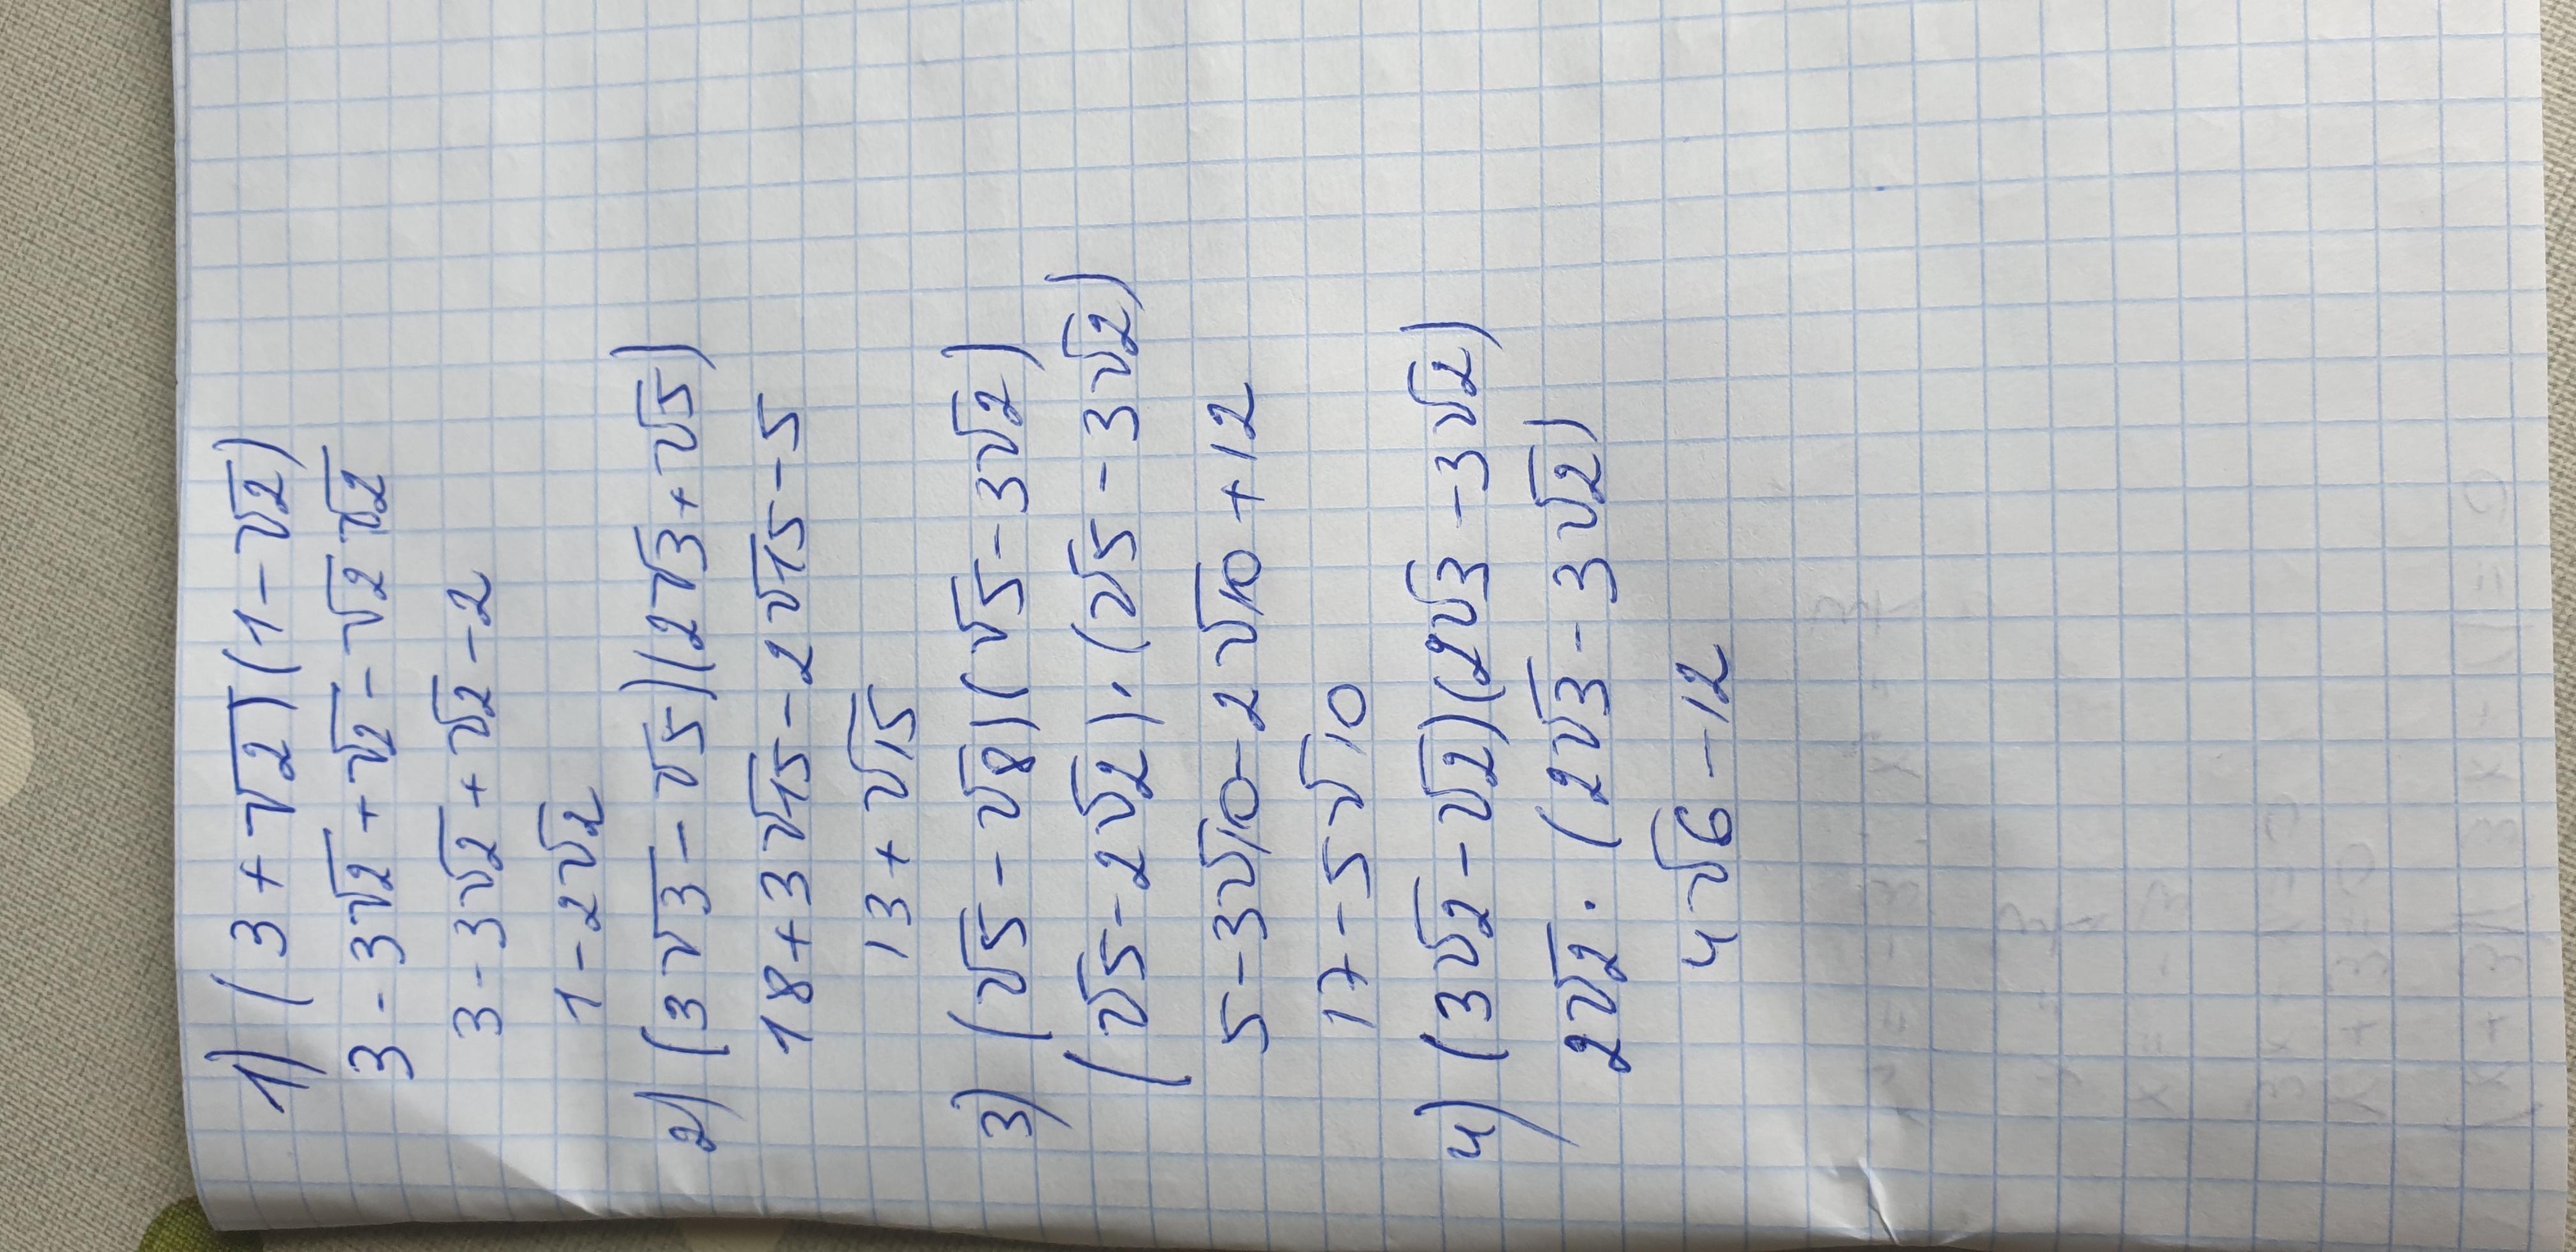 1) (3+√2)(1-√2)
3-3√2+√2-√2√2
3-3√2+√2-2
1-2√2
2) (3√3-√5)(2√3+√5)
18+3√15-2√15-5
13+√15
3) (√5-√8)(√5-3√2)
(√5-2√2).(√5-3√2)
5-3√10-2√10+12
17-5√10
4) (3√2-√2)(2√3-3√2)
2√2.(2√3-3√2)
4√6-12